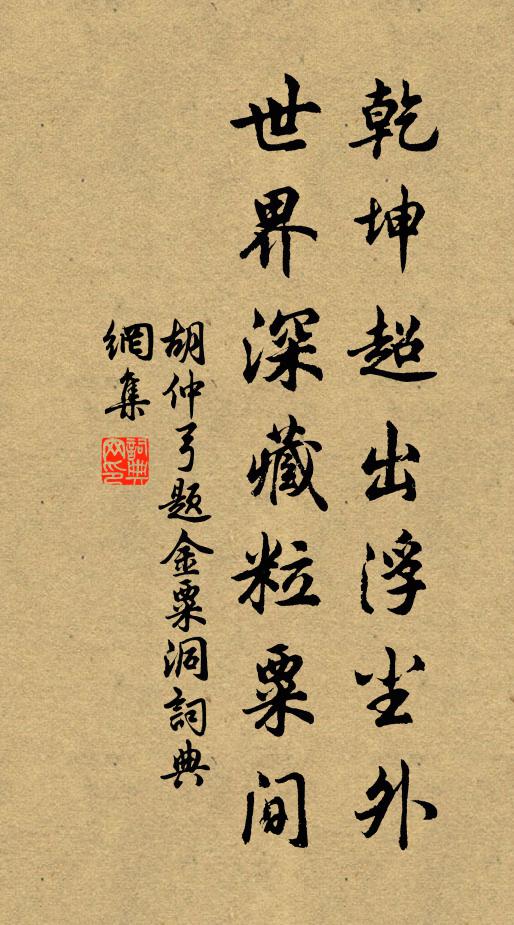 乾坤超出浮尘外
世界深藏粒粟间
胡仲弓题金粟洞詞典
網集
詞典
网印